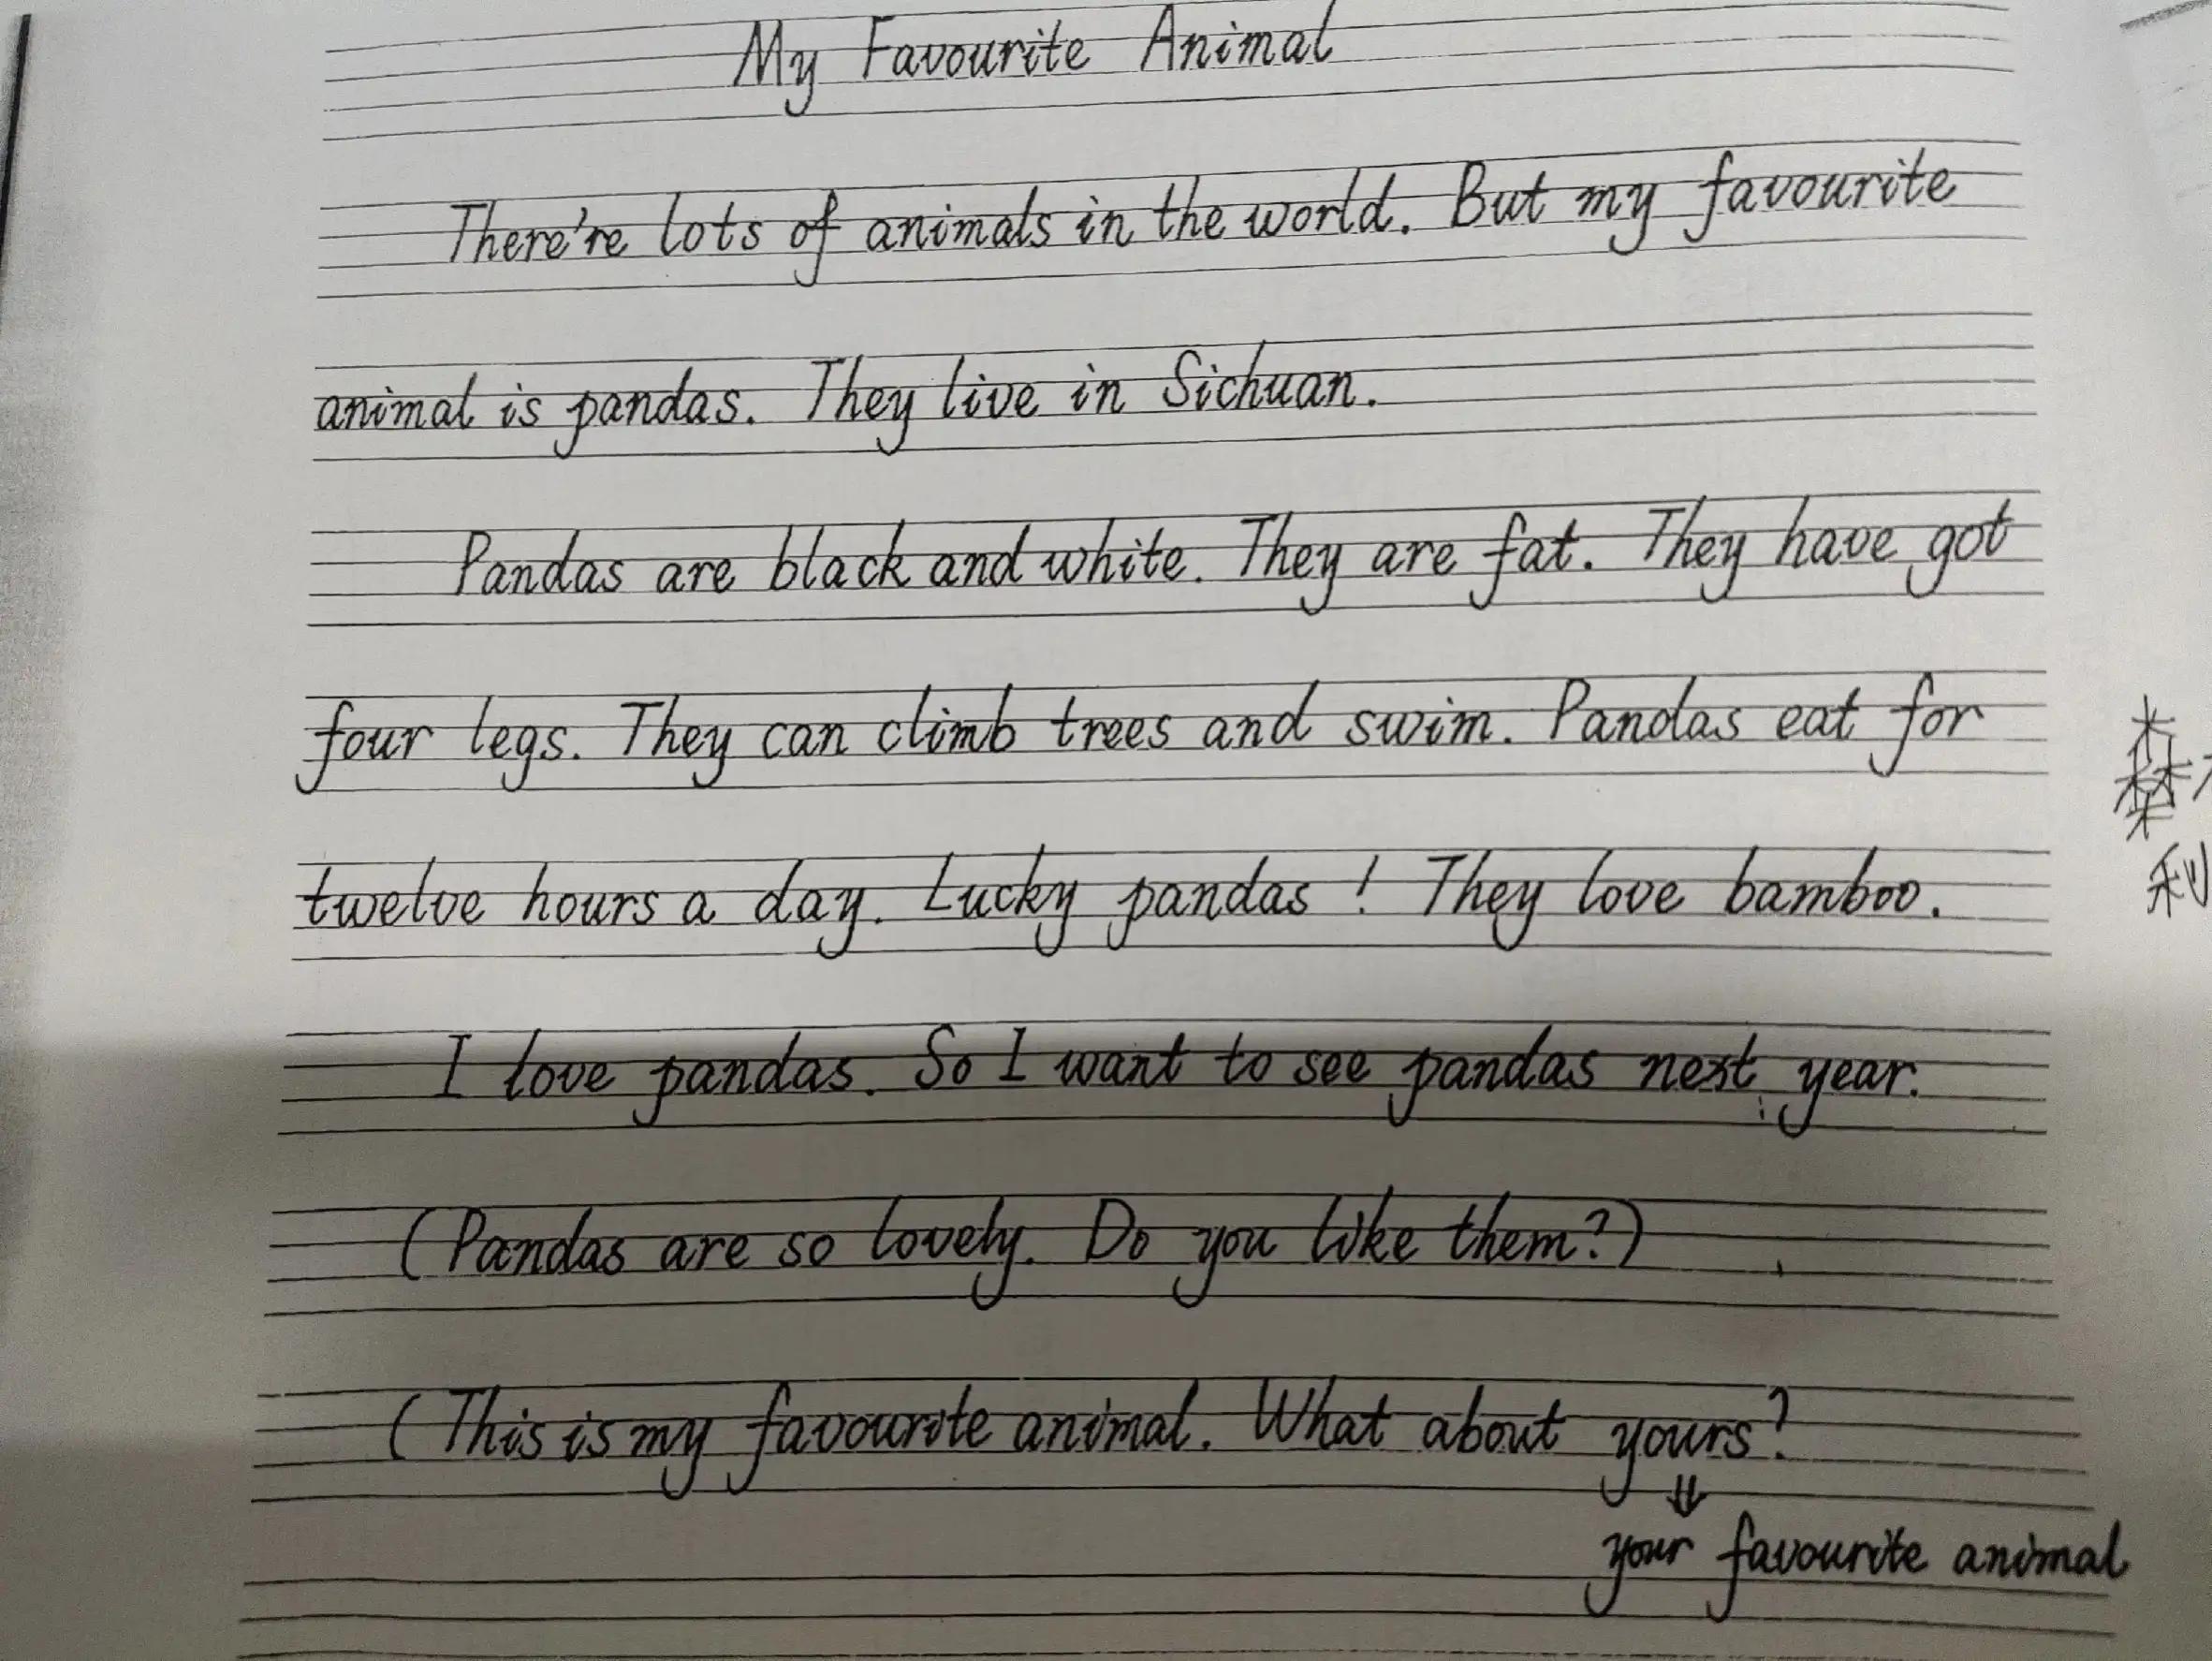 My Favourite Animal
There're lots of animals in the world. But my favourite
animal is pandas. They live in Sichuan.
Pandas are black and white. They are fat. They have got
four legs. They can climb trees and swim. Pandas eat for
twelve hours a day. Lucky pandas! They love bamboo.
I love pandas. So I want to see pandas next year.
(Pandas are so lovely. Do you like them?)
(This is my favourite animal. What about yours?
⇓
your favourite animal
利